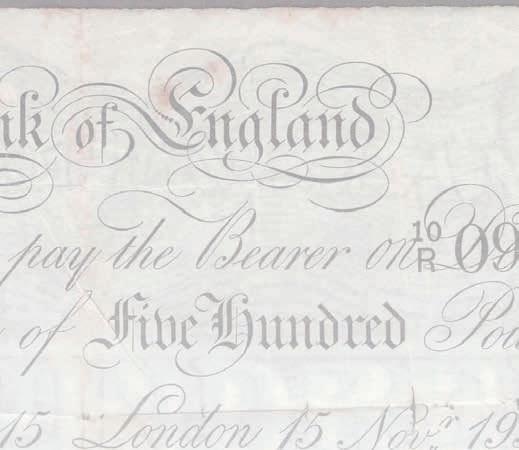 nk of England
pay the Bearer on 10/R 09
of Five Hundred Pou
15 London 15 Novr 193